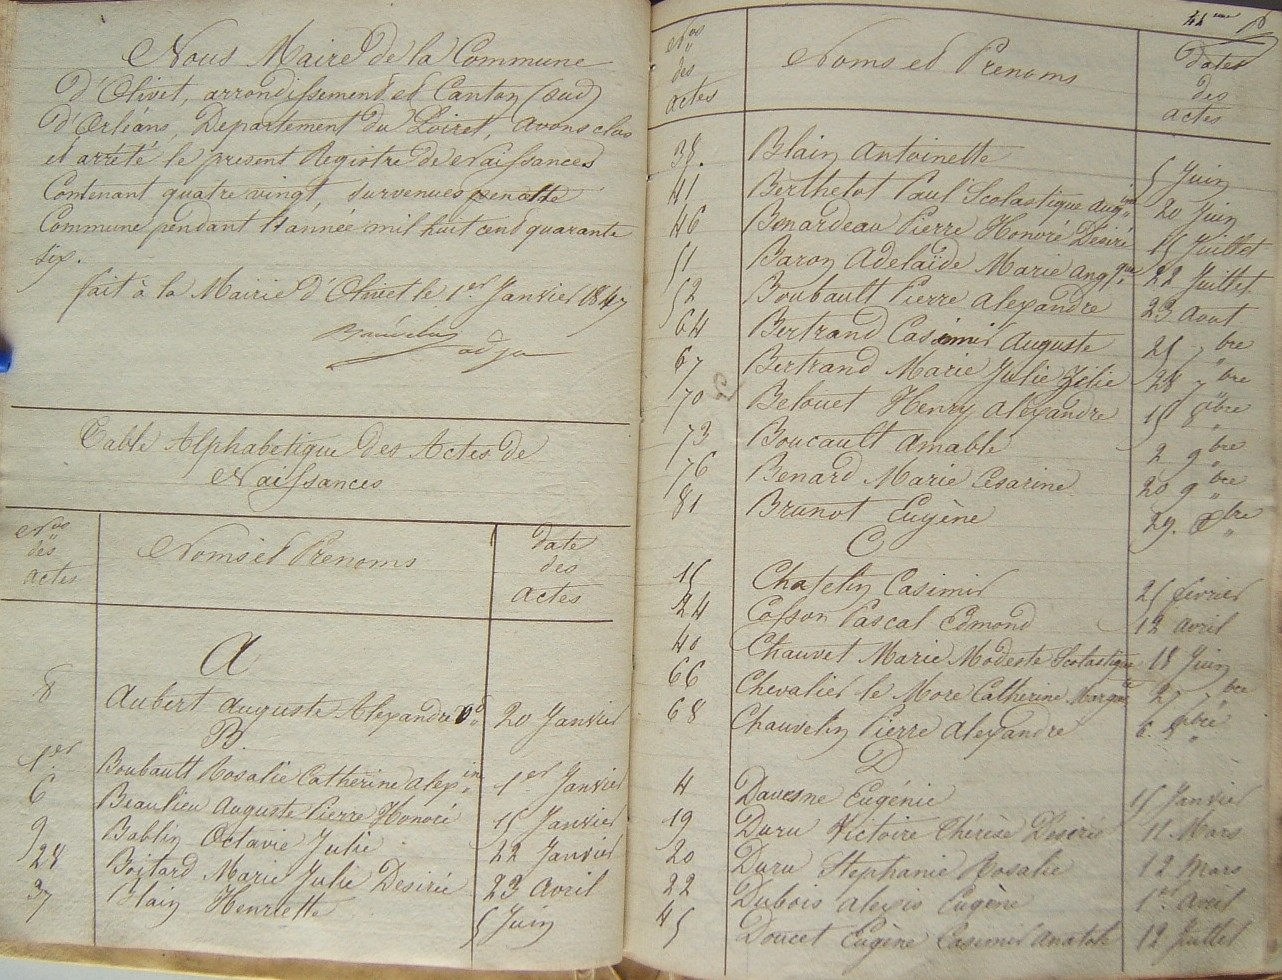 Nous Maire de la Commune
d'Olivet, arrondissement et Canton (sud)
d'Orléans, Departement du Loiret, avons clos
et arrêté le present Registre de Naissances
Contenant quatre vingt, survenues
Commune pendant l'année mil huit cent quarante
six.
fait à la Mairie d'Olivet le 1er Janvier 1847
adj
Table Alphabetique des Actes de
Naissances
Nos des actes Noms et Prenoms date des actes
A
8 Aubert Auguste Alexandre 20 Janvier
B
1er Boubault Rosalie Catherine Alexine 1er Janvier
6 Beaulieu Auguste Pierre Honoré 15 Janvier
9 Bablin Octavie Julie 22 Janvier
28 Boitard Marie Julie Desirée 23 Avril
37 Blain Henriette 5 Juin
Nos des actes Noms et Prenoms dates des actes
38. Blain Antoinette 5 Juin
41 Berthelot Paul Scolastique 20 Juin
46 Benardeau Pierre Honoré Désiré 15 Juillet
51 Baron Adelaïde Marie Angque 22 Juillet
52 Boubault Pierre Alexandre 23 Aout
64 Bertrand Casimir Auguste 25 7bre
67 Bertrand Marie Julie Zélie 28 7bre
70 Belouet Henry Alexandre 15 8bre
73 Boucault Amable 2 9bre
76 Benard Marie Césarine 20 9bre
81 Brunot Eugène 29. Xbre
C
15 Chatelin Casimir 25 février
24 Cosson Pascal Edmond 12 Avril
40 Chauvet Marie Modeste Scolastique 18 Juin
66 Chevalier le More Catherine Margte 27 7bre
68 Chauvelin Pierre Alexandre 6. 8bre
D
4 Davesne Eugénie 15 Janvier
19 Duru Victoire Thérèse Désirée 11 Mars
20 Duru Stephanie Rosalie 12 Mars
22 Dubois Alexis Eugène 1er Avril
45 Doucet Eugène Casimir Anatole 12 Juillet